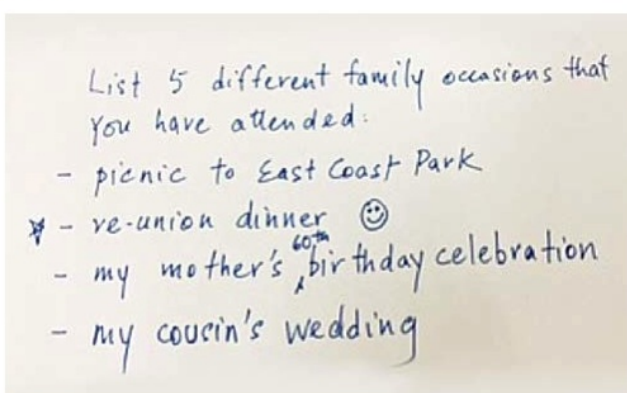 List 5 different family occasions that
you have attended:
- picnic to East Coast Park
☆ - re-union dinner ☺
- my mother's 60th birthday celebration
- my cousin's wedding